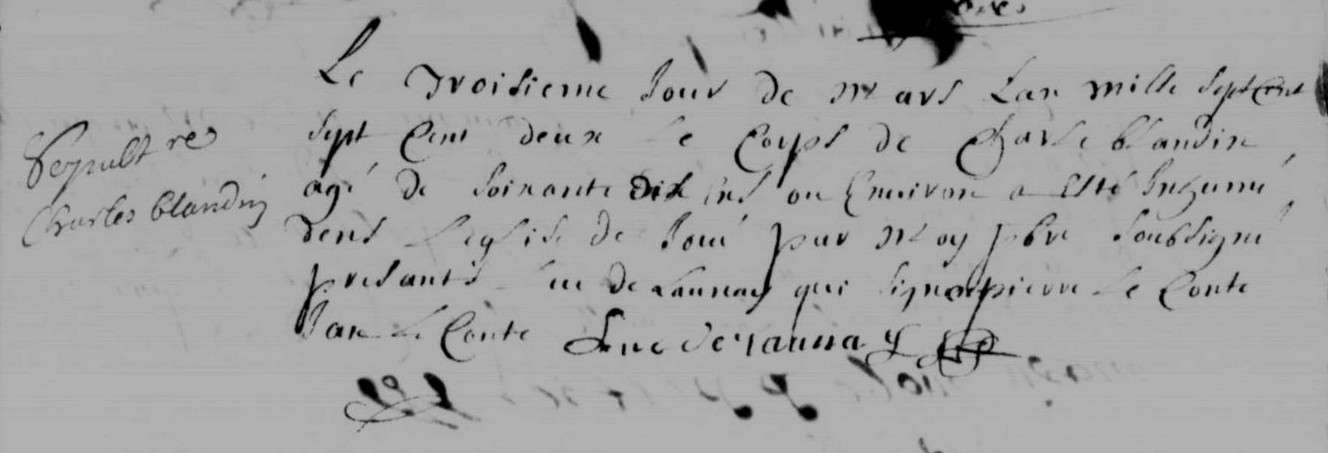 Le troisieme Jour de Mars Lan mille sept Cent
sept Cent deux le Corps de Charle blandin
Sepultre
agé de soixante dix ens ou Environ a Esté Inhumé
Charles blandin
dens Leglise de Joué par Moy pbre soubsigné
presants luc de Launay qui signe pierre Le Conte
Jan Le Conte Luc de launay